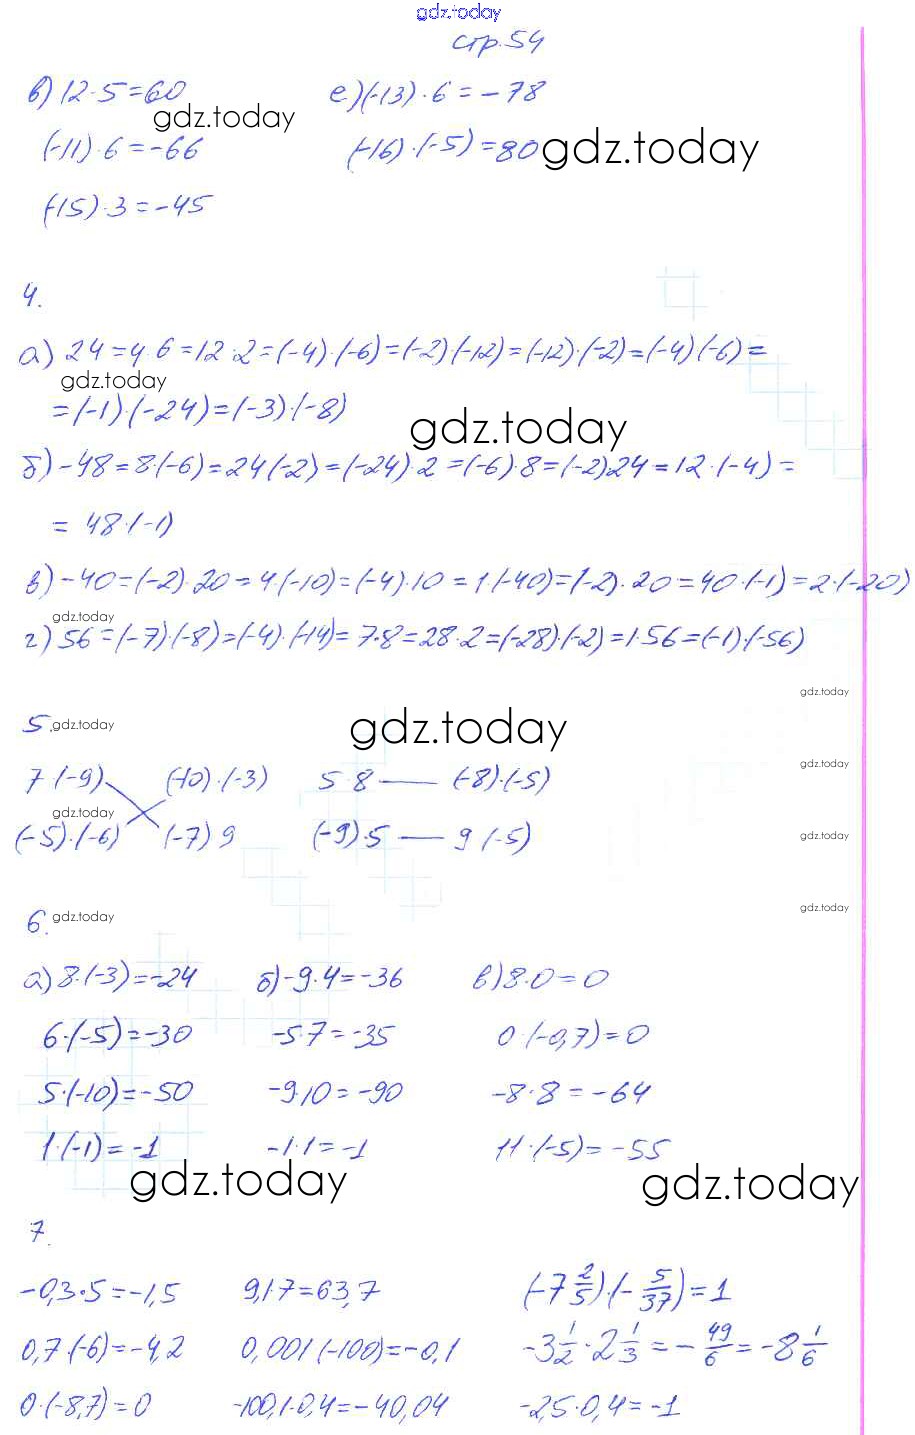 gdz.today
стр.54
в) 12·5=60 е) (-13)·6=-78
gdz.today
(-11)·6=-66 (-16)·(-5)=80 gdz.today
(-15)·3=-45
4.
а) 24=4·6=12·2=(-4)·(-6)=(-2)(-12)=(-12)·(-2)=(-4)(-6)=
gdz.today
=(-1)·(-24)=(-3)·(-8)
gdz.today
б) -48=8·(-6)=24(-2)=(-24)·2=(-6)·8=(-2)24=12·(-4)=
= 48·(-1)
в) -40=(-2)·20=4·(-10)=(-4)·10=1(-40)=(-2)·20=40·(-1)=2·(-20)
gdz.today
г) 56=(-7)·(-8)=(-4)·(-14)=7·8=28·2=(-28)·(-2)=1·56=(-1)·(-56)
gdz.today
5. gdz.today gdz.today
gdz.today
7·(-9) (-10)·(-3) 5·8 — (-8)·(-5)
gdz.today
(-5)·(-6) (-7)9 (-9)·5 — 9(-5)
gdz.today
gdz.today
6. gdz.today
а) 8·(-3)=-24 б) -9·4=-36 в) 8·0=0
6·(-5)=-30 -5·7=-35 0·(-0,7)=0
5·(-10)=-50 -9·10=-90 -8·8=-64
1·(-1)=-1 -1·1=-1 11·(-5)=-55
gdz.today gdz.today
7.
-0,3·5=-1,5 9,1·7=63,7 (-7 2/5)·(-5/37)=1
0,7·(-6)=-4,2 0,001(-100)=-0,1 -3 1/2·2 1/3=-49/6=-8 1/6
0·(-8,7)=0 -100,1·0,4=-40,04 -2,5·0,4=-1